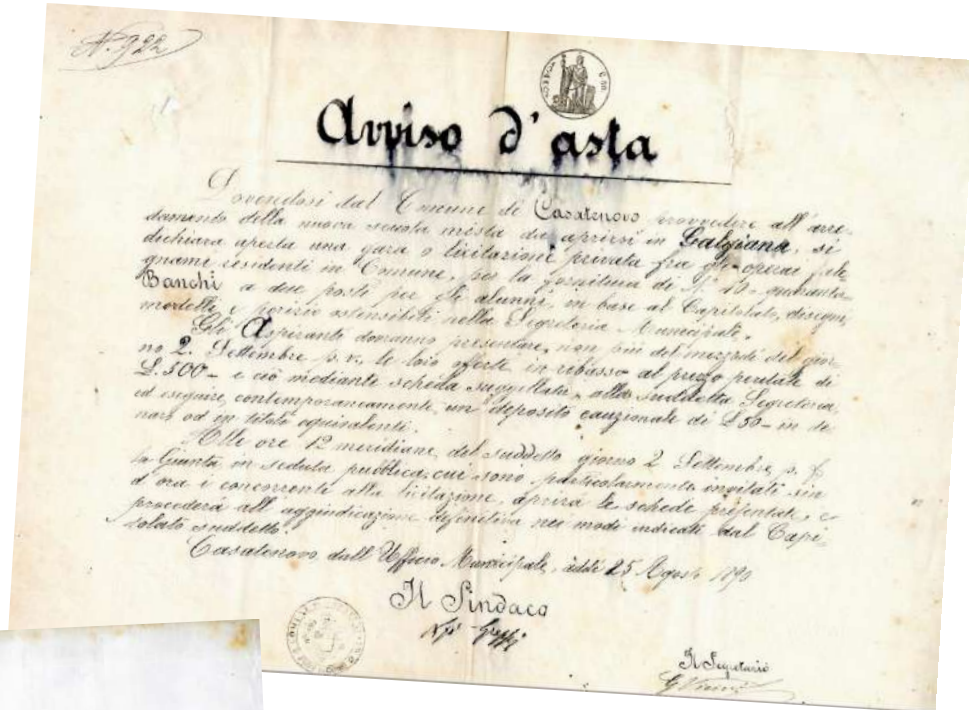 N. 922
Avviso d'asta
Dovendosi dal Comune di Casatenovo provvedere all'arre-
damento della nuova scuola mista da aprirsi in Galgiana, si
dichiara aperta una gara o licitazione privata fra gli operai fale
gnami residenti in Comune, per la fornitura di N. 40 - quaranta
Banchi a due posti per gli alunni, in base al Capitolato, disegni,
modelli e perizia ostensibili nella Segreteria Municipale.
Gli Aspiranti dovranno presentare, non più del mezzodì del gior-
no 2. Settembre p. v. le loro offerte in ribasso al prezzo peritale di
L. 500 - e ciò mediante scheda suggellata, alla suddetta Segreteria,
ed eseguire contemporaneamente un deposito cauzionale di L 50 - in de
naro od in titoli equivalenti.
Alle ore 12 meridiane del suddetto giorno 2 Settembre p. f.
la Giunta in seduta pubblica, cui sono particolarmente invitati sin
d'ora i concorrenti alla licitazione, aprirà le schede presentate, e
procederà all'aggiudicazione definitiva nei modi indicati dal Capi-
tolato suddetto.
Casatenovo, dall'Ufficio Municipale, addì 25 Agosto 1890
Il Sindaco
Il Segretario